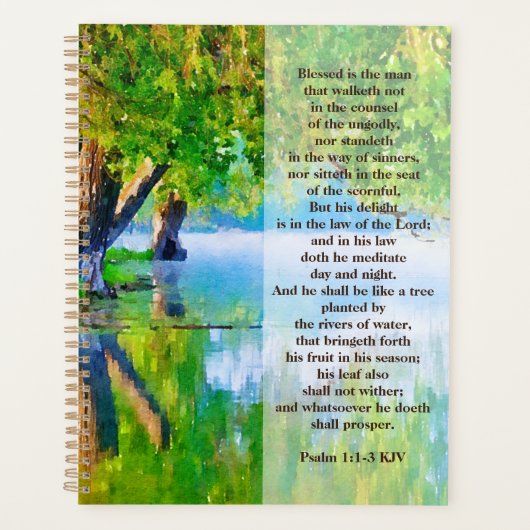 Blessed is the man
that walketh not
in the counsel
of the ungodly,
nor standeth
in the way of sinners,
nor sitteth in the seat
of the scornful,
But his delight
is in the law of the Lord;
and in his law
doth he meditate
day and night.
And he shall be like a tree
planted by
the rivers of water,
that bringeth forth
his fruit in his season;
his leaf also
shall not wither;
and whatsoever he doeth
shall prosper.
Psalm 1:1-3 KJV